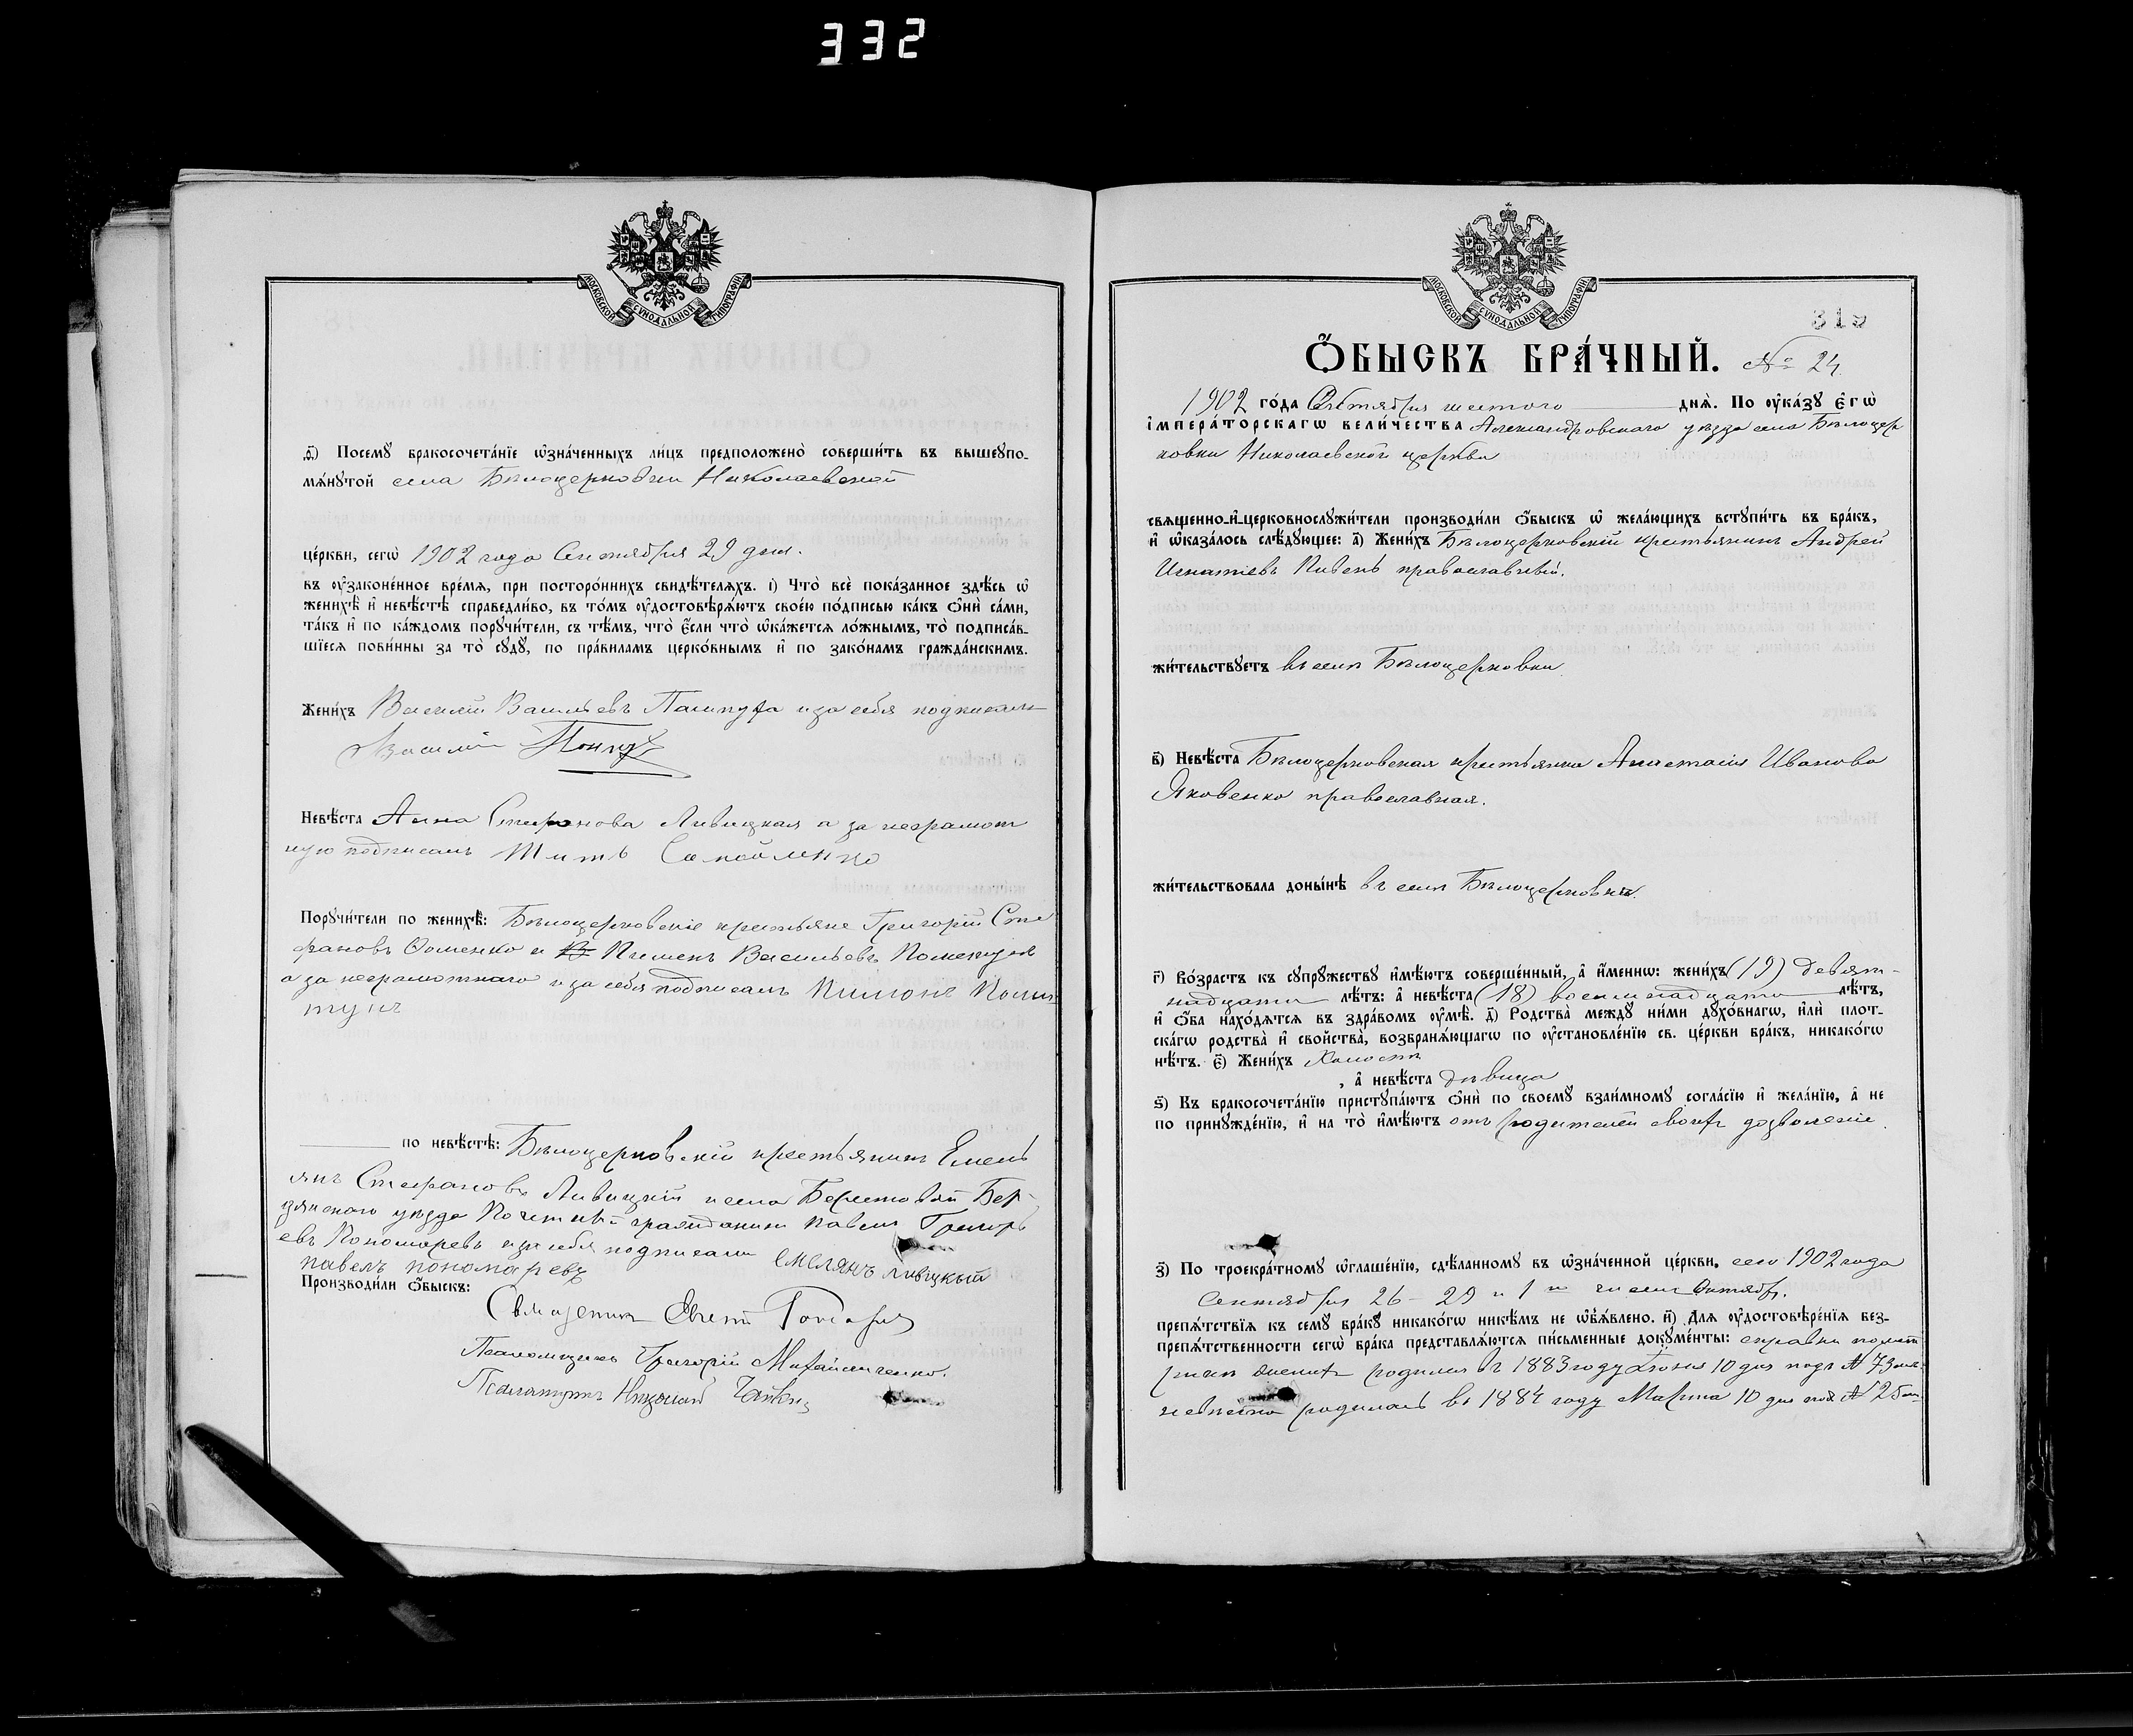 332
МОСКОВСКОЙ СѴНОДАЛЬНОЙ ТИПОГРАФІИ
ѳ҃) Посемꙋ бракосочета́нїе ѡ҆зна́ченныхъ ли́цъ предположено̀ соверши́ть въ вышеꙋпо-
мѧ́нꙋтой села Бѣлоцерковки Николаевской
це́ркви, сегѡ̀ 1902 года Сентября 29 дня.
въ ᲂу҆зако́ненное вре́мѧ, при посторо́ннихъ свидѣ́телѧхъ. і҃) Что̀ всѐ пока́занное здѣ́сь ѡ҆
женихѣ̀ и҆ невѣ́стѣ справедли́во, въ то́мъ ᲂу҆достовѣрѧ́ютъ свое́ю по́дписью ка́къ ѻ҆нѝ са́ми,
та́къ и҆ по ка́ждомъ порꙋчи́тели, съ тѣ́мъ, что̀ є҆́сли что̀ ѡ҆ка́жетсѧ ло́жнымъ, то̀ подписа́в-
шїесѧ пови́нны за то̀ сꙋдꙋ̀, по пра́виламъ церко́внымъ и҆ по зако́намъ гражда́нскимъ.
Жени́хъ Василій Васильевъ и за себя подписалъ
Василій
Невѣ́ста Анна Стефанова Ливицкая а за неграмот
ную подписалъ Титъ Самойленко
Порꙋчи́тели по женихѣ̀: Бѣлоцерковскіе крестьяне Григорій Сте
фановъ Фоменко и Пименъ Васильевъ
а за неграмотнаго и за себя подписалъ
по невѣ́стѣ: Бѣлоцерковскій крестьянинъ Емель
янъ Стефановъ Ливицкій и села Берестоваго Бер-
дянскаго уѣзда Почетный гражданинъ Павелъ Григорь
евъ Пономаревъ и за себя подписали емелянъ ливицкый
павелъ пономаревъ
Производи́ли ѻ҆́быскъ:
Священникъ Евгеній
Псаломщикъ Григорій Михайличенко.
Псаломщикъ Николай
МОСКОВСКОЙ СѴНОДАЛЬНОЙ ТИПОГРАФІИ
319
Ѻ҆́БЫСКЪ БРА́ЧНЫЙ. № 24
1902 го́да Октября шестого днѧ̀. По ᲂу҆ка́зꙋ є҆гѡ̀
і҆мпера́торскагѡ вели́чества Александровскаго уѣзда села Бѣлоцер
ковки Николаевской церкви
свѧщенно-и҆-церковнослꙋжи́тели производи́ли ѻ҆́быскъ ѡ҆ жела́ющихъ встꙋпи́ть въ бра́къ,
и҆ ѡ҆каза́лось слѣ́дꙋющее: а҃) Жени́хъ Бѣлоцерковскій крестьянинъ Андрей
Игнатіевъ Пивень православный.
жи́тельствꙋетъ въ селѣ Бѣлоцерковки
в҃) Невѣ́ста Бѣлоцерковская крестьянка Анастасія Иванова
Яковенко православная.
жи́тельствовала доны́нѣ въ селѣ Бѣлоцерковкѣ.
г҃) Во́зрастъ къ сꙋпрꙋ́жествꙋ и҆мѣ́ютъ соверше́нный, а҆ и҆́менно: жени́хъ (19) девят-
надцати лѣ́тъ: а҆ невѣ́ста (18) восемнадцати лѣ́тъ,
и҆ ѻ҆́ба нахо́дѧтсѧ въ здра́вомъ ᲂу҆мѣ̀. д҃) Родства̀ междꙋ̀ ни́ми дꙋхо́внагѡ, и҆лѝ плот-
ска́гѡ родства̀ и҆ свойства̀, возбранѧ́ющагѡ по ᲂу҆становле́нїю св. це́ркви бра́къ, никако́гѡ
нѣ́тъ. є҃) Жени́хъ холостъ
, а҆ невѣ́ста дѣвица
ѕ҃) Къ бракосочета́нїю пристꙋпа́ютъ ѻ҆нѝ по своемꙋ̀ взаи́мномꙋ согла́сїю и҆ жела́нїю, а҆ не
по принꙋжде́нїю, и҆ на то̀ и҆мѣ́ютъ отъ родителей своихъ дозволеніе
з҃) По троекра́тномꙋ ѡ҆глаше́нїю, сдѣ́ланномꙋ въ ѡ҆зна́ченной це́ркви, сего 1902 года
Сентября 26 - 29 и 1 го числа Октября.
препѧ́тствїѧ къ семꙋ̀ бра́кꙋ никако́гѡ никѣ́мъ не ѡ҆б̾ѧ́влено. и҃) Длѧ ᲂу҆достовѣре́нїѧ без-
препѧ́тственности сегѡ̀ бра́ка представлѧ́ютсѧ пи́сьменные докꙋме́нты: справки по мет
рикѣ женихъ родился въ 1883 году Іюня 10 дня подъ № 73
невѣста родилась въ 1884 году Марта 10 дня подъ № 25